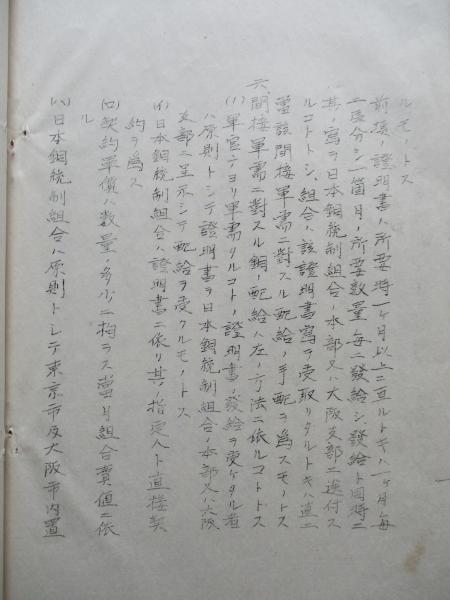 ルモノトス
前項ノ證明書ハ所要時一ケ月以上ニ亘ルトキハ一ケ月毎
ニ區分シ一箇月ノ所要數量毎ニ發給シ發給ト同時ニ
其ノ寫ヲ日本銅統制組合ノ本部又ハ大阪支部ニ送付ス
ルコトトシ、組合ハ該證明書寫ヲ受取リタルトキハ直ニ
當該間接軍需ニ對スル配給ノ手配ヲ爲スモノトス
六、間接軍需ニ對スル銅ノ配給ハ左ノ方法ニ依ルコトトス
(1) 軍官ヨリ軍需タルコトノ證明書ノ發給ヲ受ケタル者
ハ原則トシテ證明書ヲ日本銅統制組合ノ本部又ハ大阪
支部ニ呈示シテ配給ヲ受クルモノトス
(イ)日本銅統制組合ハ證明書ニ依リ其ノ指定人ト直接契
約ヲ爲ス
(ロ)契約單價ハ數量ノ多少ニ拘ラス當月組合賣値ニ依
ル
(ハ)日本銅統制組合ハ原則トシテ東京市及大阪市内置